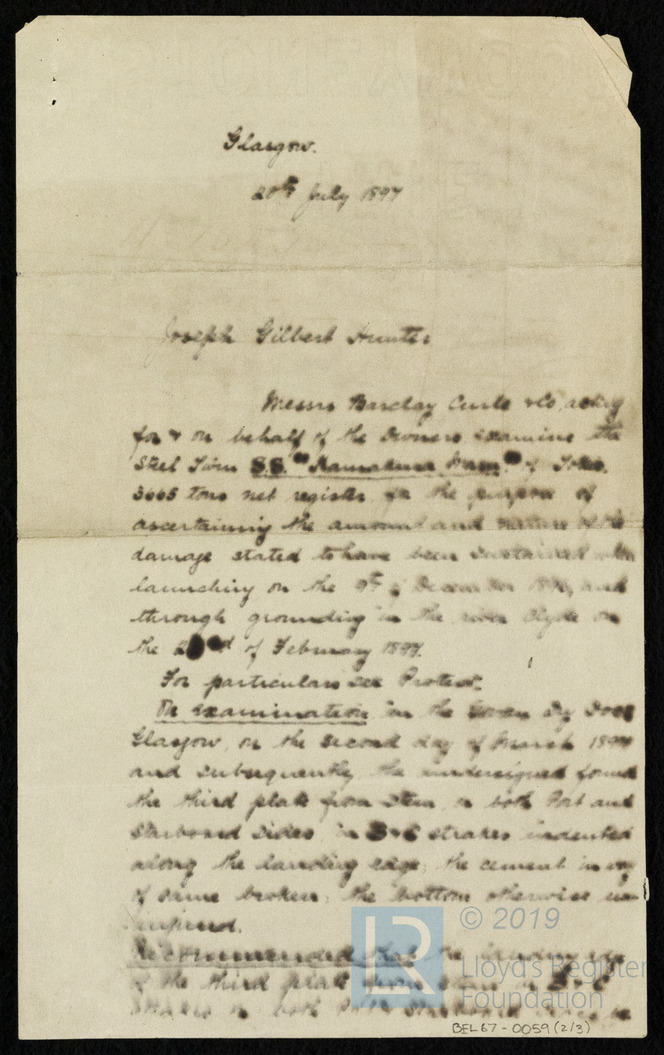 Glasgow.
20th July 1897
Joseph Gilbert Hunter
Messrs Barclay Curle & Co, acting
for & on behalf of the Owners examine the
Steel Twin S.S. "Kamakura Maru" of Tokio,
3665 tons net register for the purpose of
ascertaining the amount and nature of the
damage stated to have been sustained when
launching on the 9th of December 1896, and
through grounding in the river Clyde on
the of February 1897.
For particulars see Protest.
On examination in the Govan Dry Dock
Glasgow, on the second day of March 1897
and subsequently, the undersigned found
the third plate from Stem, on both Port and
Starboard Sides, in B & C strakes indented
along the landing edge; the cement in way
of same broken; the bottom otherwise un-
injured.
Recommended that the landing edge
of the third plate from stem in B & C
strakes on both Port & Starboard sides be
© 2019
LR
Lloyd's Register
Foundation
BEL67-0059(2/3)